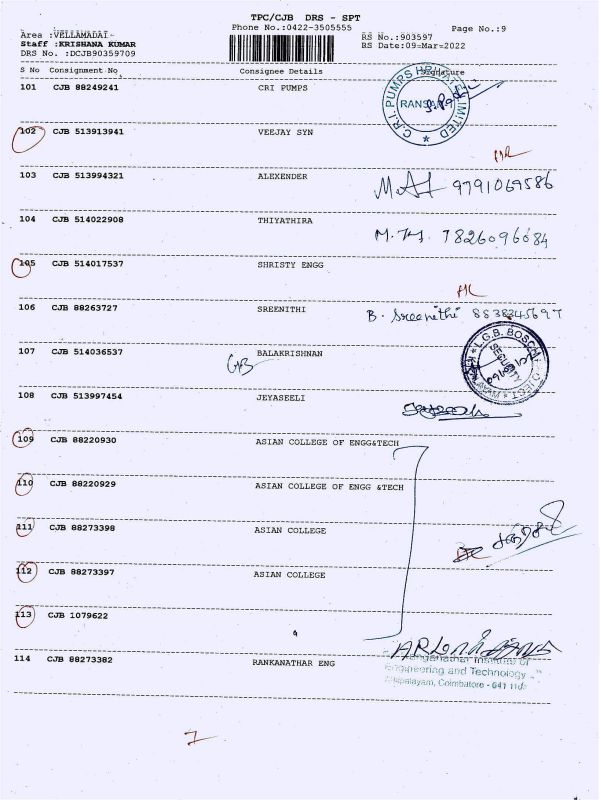 TPC/CJB DRS - SPT
Area :VELLAMADAI - Phone No.:0422-3505555 Page No.:9
Staff :KRISHANA KUMAR RS No.:903597
DRS No. :DCJB90359709 RS Date:09-Mar-2022
S No Consignment No Consignee Details Signature
101 CJB 88249241 CRI PUMPS
C.R.I. PUMPS PRIVATE LIMITED
102 CJB 513913941 VEEJAY SYN
103 CJB 513994321 ALEXENDER 9791069586
104 CJB 514022908 THIYATHIRA M.M. 7826096084
105 CJB 514017537 SHRISTY ENGG
106 CJB 88263727 SREENITHI B. Sreenithi 8838345697
107 CJB 514036537 BALAKRISHNAN
L.G.B. BOSCH
108 CJB 513997454 JEYASEELI
109 CJB 88220930 ASIAN COLLEGE OF ENGG&TECH
110 CJB 88220929 ASIAN COLLEGE OF ENGG &TECH
111 CJB 88273398 ASIAN COLLEGE
112 CJB 88273397 ASIAN COLLEGE
113 CJB 1079622
114 CJB 88273382 RANKANATHAR ENG
Institute of
Engineering and Technology
Coimbatore - 641